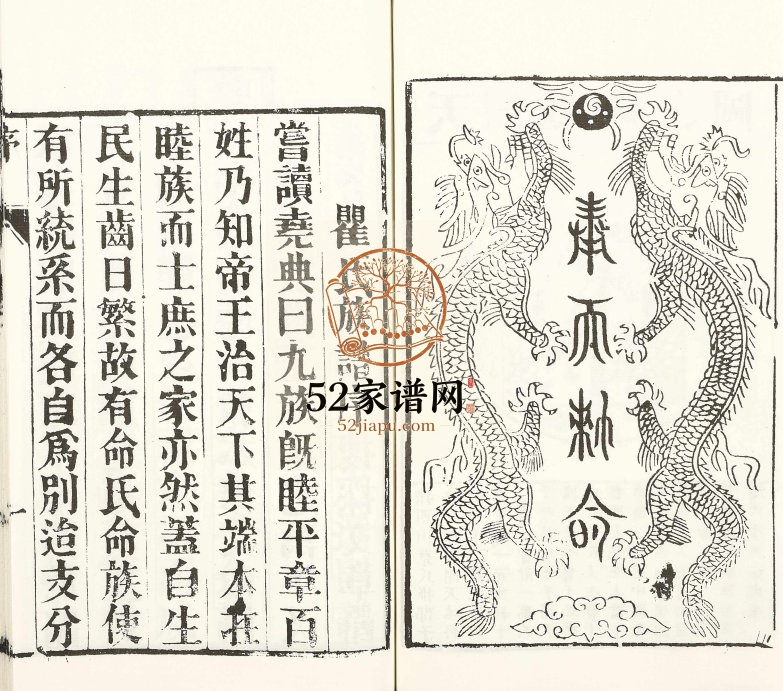 奉天勅命
瞿氏族譜
嘗讀堯典曰九族既睦平章百
姓乃知帝王治天下其端本在
睦族而士庶之家亦然蓋自生
民生齒日繁故有命氏命族使
有所統系而各自為別迨支分
序
一
52家谱网
52jiapu.com